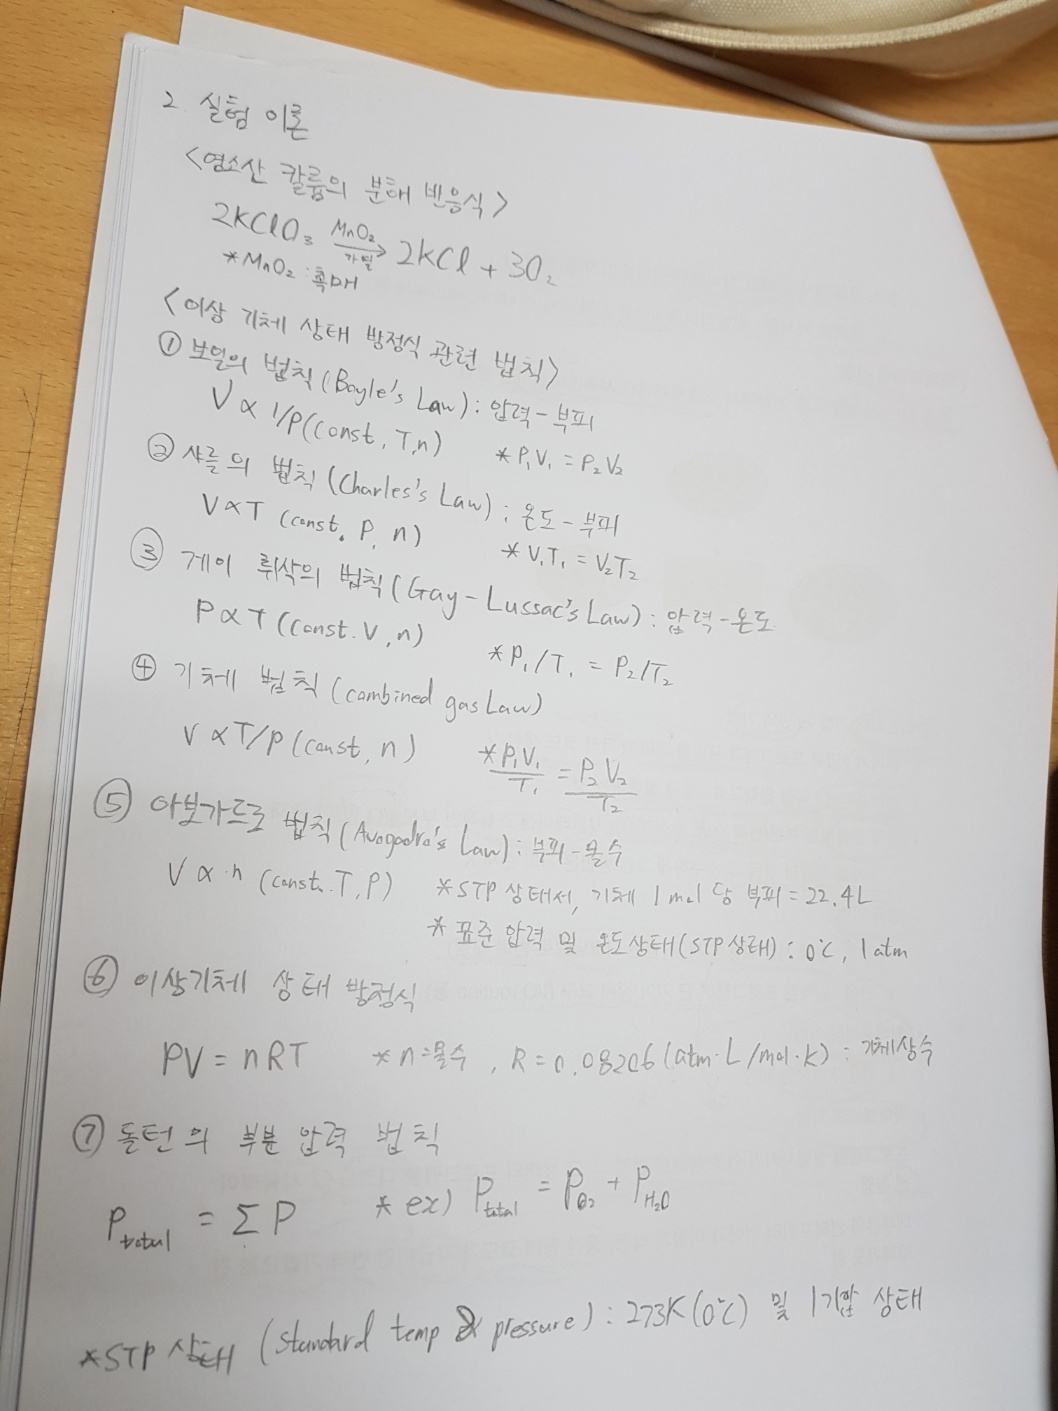 2. 실험 이론
<염소산 칼륨의 분해 반응식>
2KClO₃ MnO₂ 가열 → 2KCl + 3O₂
*MnO₂ : 촉매
<이상 기체 상태 방정식 관련 법칙>
① 보일의 법칙(Boyle's Law) : 압력-부피
V ∝ 1/P(const. T,n) *P₁V₁ = P₂V₂
② 샤를의 법칙(Charles's Law) : 온도-부피
V∝T (const. P, n) *V₁T₁ = V₂T₂
③ 게이 뤼삭의 법칙(Gay-Lussac's Law) : 압력-온도
P∝T (const. V, n) *P₁/T₁ = P₂/T₂
④ 기체 법칙(combined gas Law)
V ∝T/P (const, n) *P₁V₁/T₁ = P₂V₂/T₂
⑤ 아보가드로 법칙(Avogadro's Law) : 부피-몰수
V ∝ n (const. T, P) *STP 상태서, 기체 1mol 당 부피 = 22.4L
* 표준 압력 및 온도상태(STP 상태) : 0℃, 1atm
⑥ 이상기체 상태 방정식
PV = nRT *n=몰수, R=0.08206(atm·L/mol·K) : 기체상수
⑦ 돌턴의 부분 압력 법칙
P total = ΣP * ex) P total = P O₂ + P H₂O
*STP 상태 (standard temp & pressure) : 273K(0℃) 및 1기압 상태